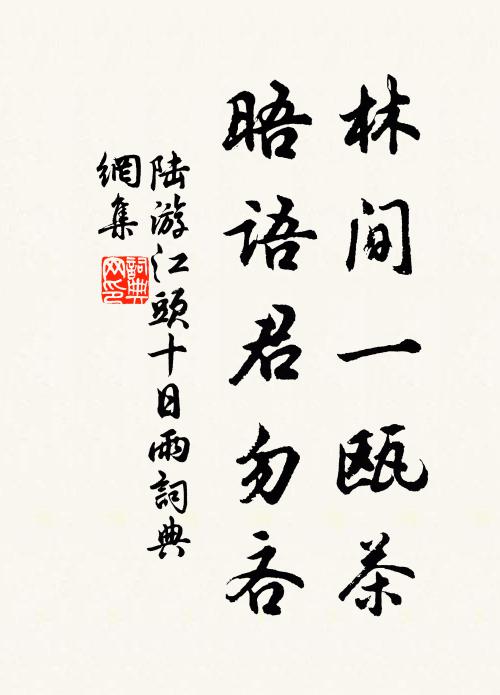 林间一瓯茶
晤语君勿吝
陆游江頭十日雨詞典
網集
詞典
网印